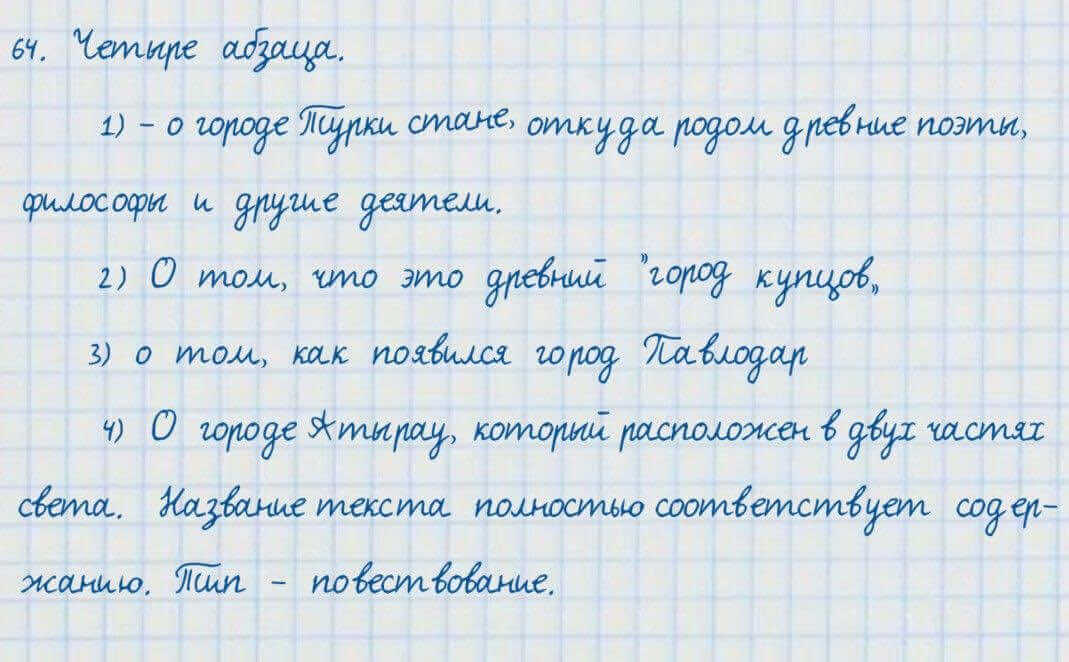 64. Четыре абзаца.
1) - о городе Туркистане, откуда родом древние поэты,
философы и другие деятели.
2) О том, что это древний "город купцов„
3) о том, как появился город Павлодар
4) О городе Атырау, который расположен в двух частях
света. Название текста полностью соответствует содер-
жанию. Тип - повествование.